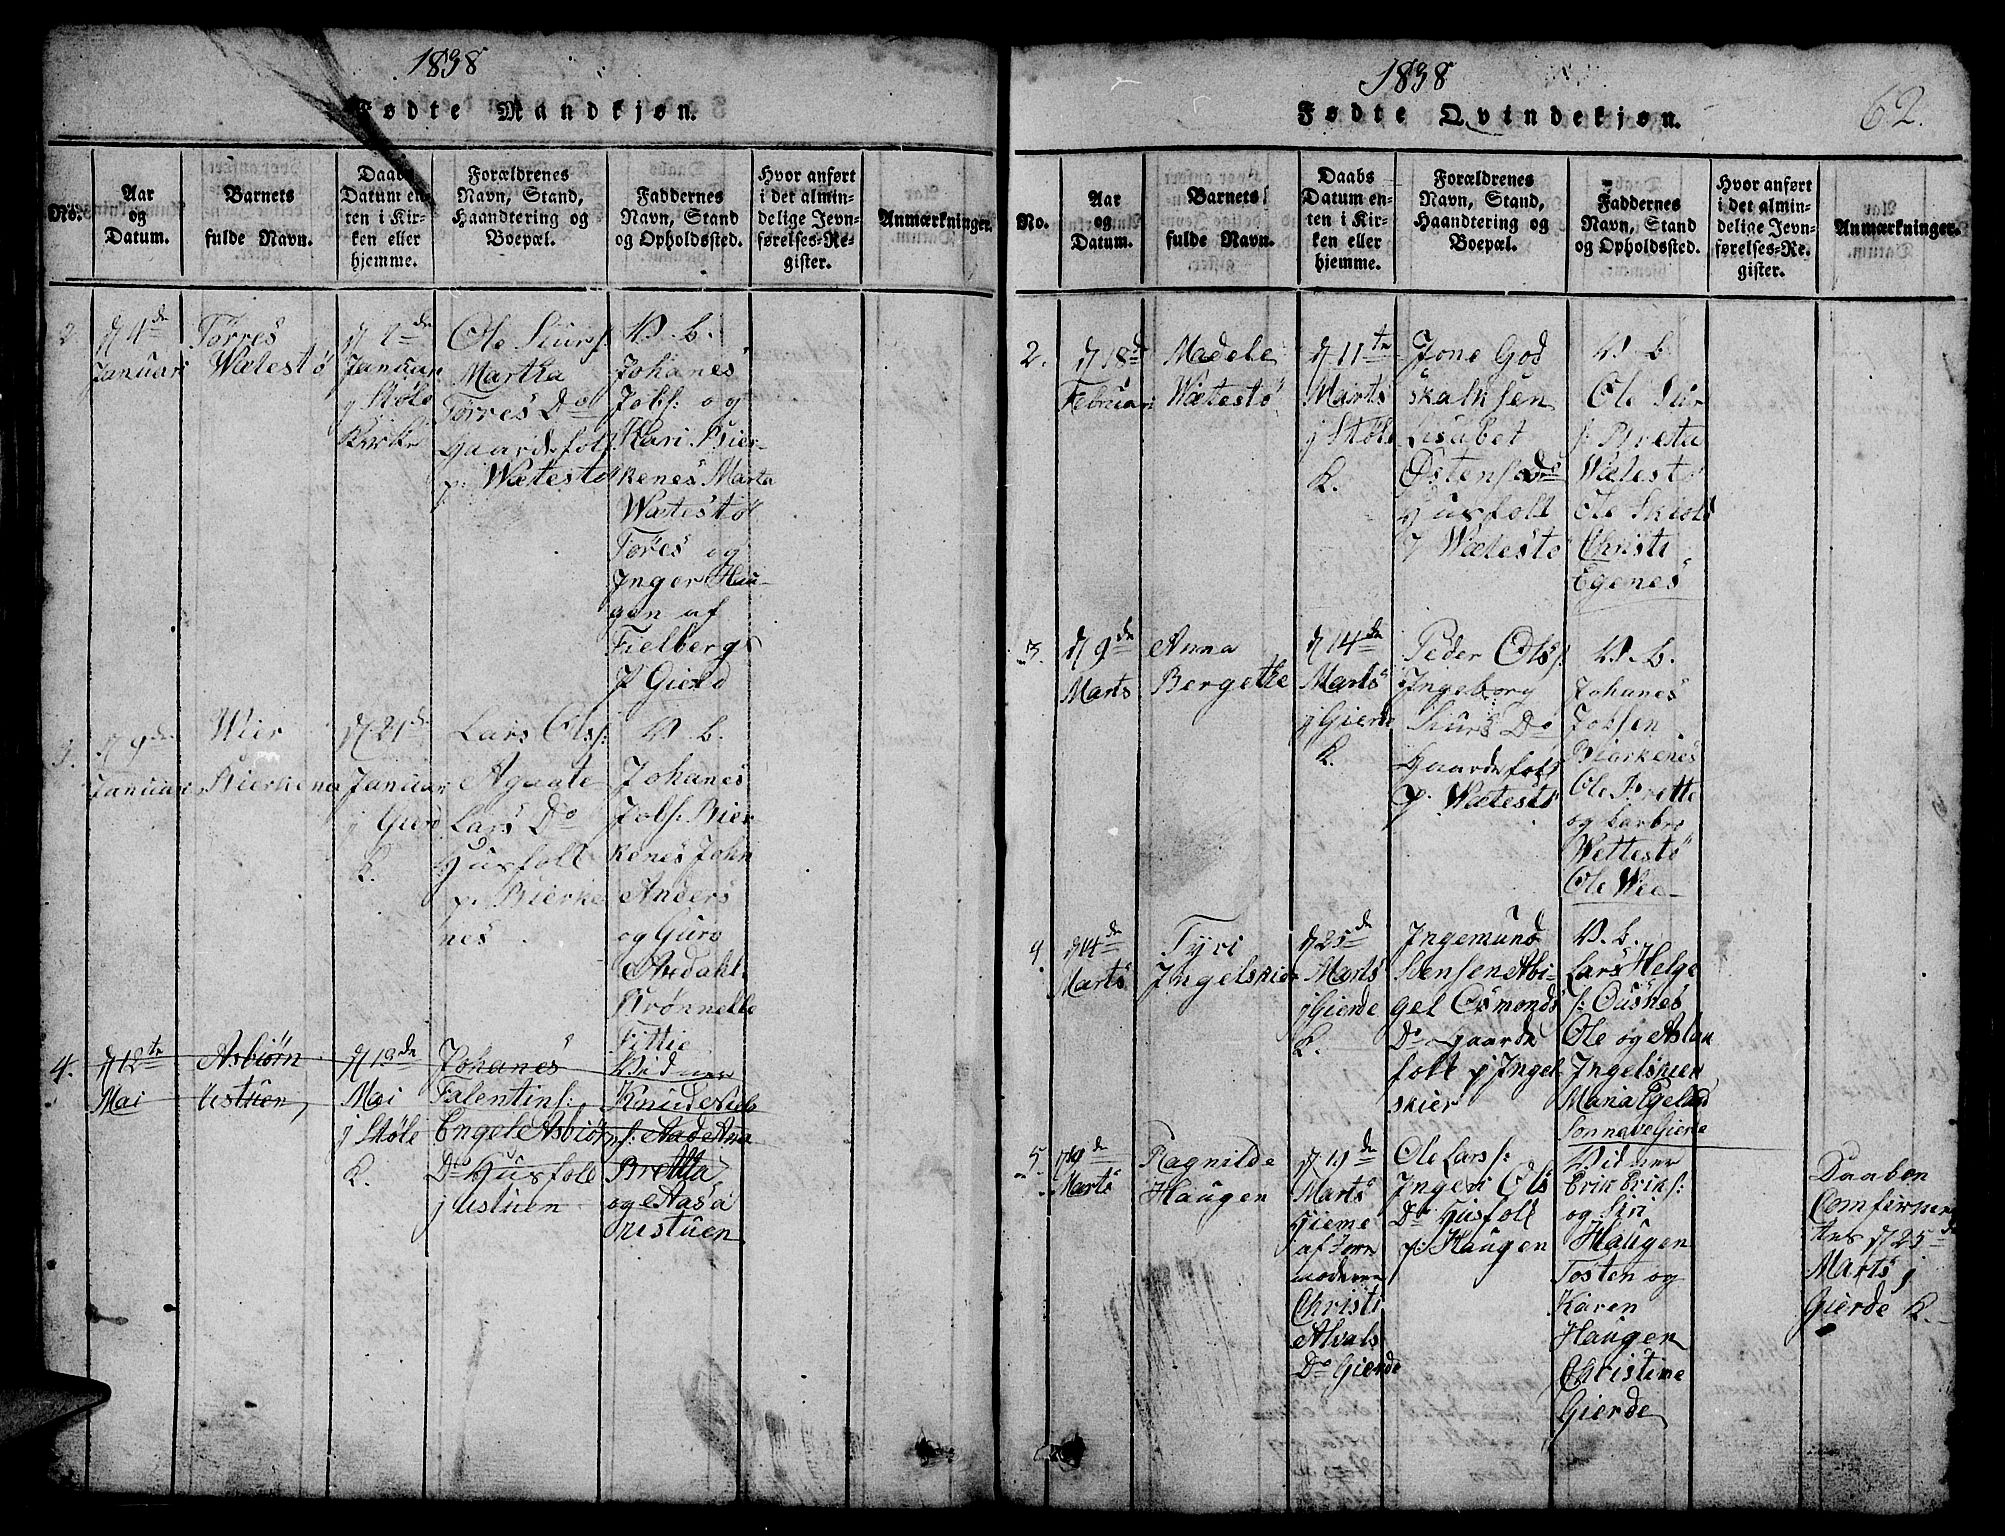 1838
Fødte Mandkjøn.
No.
Aar
og
Datum.
Barnets
fulde Navn.
Daabs
Datum en-
ten i Kir-
ken eller
hjemme.
Forældrenes
Navn, Stand,
Haandtering og
Boepæl.
Faddernes
Navn, Stand
og Opholdssted.
Hvor anført
i det almin-
delige Jevn-
førelses-Re-
gister.
Anmærkninger.
2.
d 4de
Januari
Tørres
Wætestø
Januar
j Støle
Kirke
Ole Siurs:
Martha
Tørres Do
Gaardefolk
p. Wætestø
W. b.
Johanes
Jobs: og
Kari Bier-
kenes Marta
Wætestø
Tøres og
Inger Hau-
gen af
Fielbergs
P Gield
3.
d 9de
Januar
Wier
Bierkenes
d 21de
Januar
j Gierd
K.
Lars Ols:
Agaate
Lars Do
Husfolk
p. Bierke
nes
W. b.
Johanes
Jobs: Bier
kenes John
Anders
og Guro
Ardahl
Brønnelle
Tittie
4.
d 12te
Mai
Asbiørn
ustuen
d 13de
Mai
j Støle
K.
Johanes
Falentins:
Engele Asbiørn
Do Husfolk
j ustuen
Vidner
Knud Niels
s: Aad Ana
Bretta
og Aasa
ustuen
1838
Fødte Qvindekjøn.
62.
No.
Aar
og
Datum.
Barnets
fulde Navn.
Daabs
Datum en-
ten i Kir-
ken eller
hjemme.
Forældrenes
Navn, Stand,
Haandtering og
Boepæl.
Faddernes
Navn, Stand
og Opholdssted.
Hvor anført
i det almin-
delige Jevn-
førelses-Re-
gister.
Anmærkninger.
2.
d 18de
Februari
Madele
Wætestø
d 11te
Marts
j Støle
K.
Jone God
skalksen
Lisabet
Østens Do
Husfolk
p Wætestø
W. b.
Ole Siur
s: Breta
Wætestø
Ole Skiols
Christi
Egenes
3.
d 9de
Marts
Anna
Bergethe
d 14de
Marts
j Gierde
K.
Peder Ols:
Ingeborg
Siurs Do
Gaardefolk
P. Wætestø
W. b.
Johanes
Jobsen
Bierkenes
Ole Brette
og barbro
Wettestø
Ole Wee
4.
d 14de
Marts
Tyri
Ingelskier
d 25de
Marts
j Gierde
K.
Ingemund
Svensen Abi-
gel Osmonds
Do Gaarde
folk p Ingel
skier
W. b.
Lars Helge
s: Ousnes
Ole og Aslau
Ingelskier
Maria Egeland
Tonnave Gierde
5.
d 9de
Marts
Ragnilde
Haugen
d 11de
Marts
Hieme
af Jorn
moderen
Christi
Alvals
Do Gierde
Ole Lars:
Ingeri Ols
Do Husfolk
p: Haugen
Vidner
Erik Eriks:
og Siri
Haugen
Tosten og
Karen
Haugen
Christine
Gierde
Daaben
Comfirmer
tes d 25de
Marts j
Gierde K.